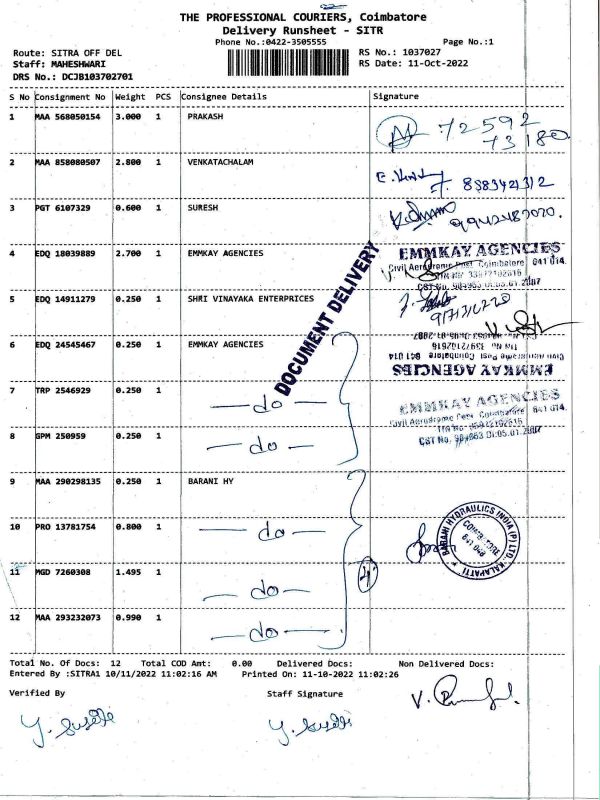 THE PROFESSIONAL COURIERS, Coimbatore
Delivery Runsheet - SITR
Phone No.:0422-3505555 Page No.:1
Route: SITRA OFF DEL RS No.: 1037027
Staff: MAHESHWARI RS Date: 11-Oct-2022
DRS No.: DCJB103702701
S No Consignment No Weight PCS Consignee Details Signature
1 MAA 568050154 3.000 1 PRAKASH
72592
73180
2 MAA 858080507 2.800 1 VENKATACHALAM
8883421312
3 PGT 6107329 0.600 1 SURESH
9942482020.
4 EDQ 18039889 2.700 1 EMMKAY AGENCIES EMMKAY AGENCIES
Civil Aerodrome Post, Coimbatore 641 014.
DOCUMENT DELIVERY
5 EDQ 14911279 0.250 1 SHRI VINAYAKA ENTERPRICES
6 EDQ 24545467 0.250 1 EMMKAY AGENCIES
EMMKAY AGENCIES
7 TRP 2546929 0.250 1 do
EMMKAY AGENCIES
Civil Aerodrome Post, Coimbatore 641 014.
8 GPM 250959 0.250 1 do
9 MAA 290298135 0.250 1 BARANI HY
10 PRO 13781754 0.800 1 do
BARANI HYDRAULICS INDIA (P) LTD. KALAPATTI
COIMBATORE
11 MGD 7260308 1.495 1 do
4
12 MAA 293232073 0.990 1 do
Total No. Of Docs: 12 Total COD Amt: 0.00 Delivered Docs: Non Delivered Docs:
Entered By :SITRA1 10/11/2022 11:02:16 AM Printed On: 11-10-2022 11:02:26
Verified By Staff Signature